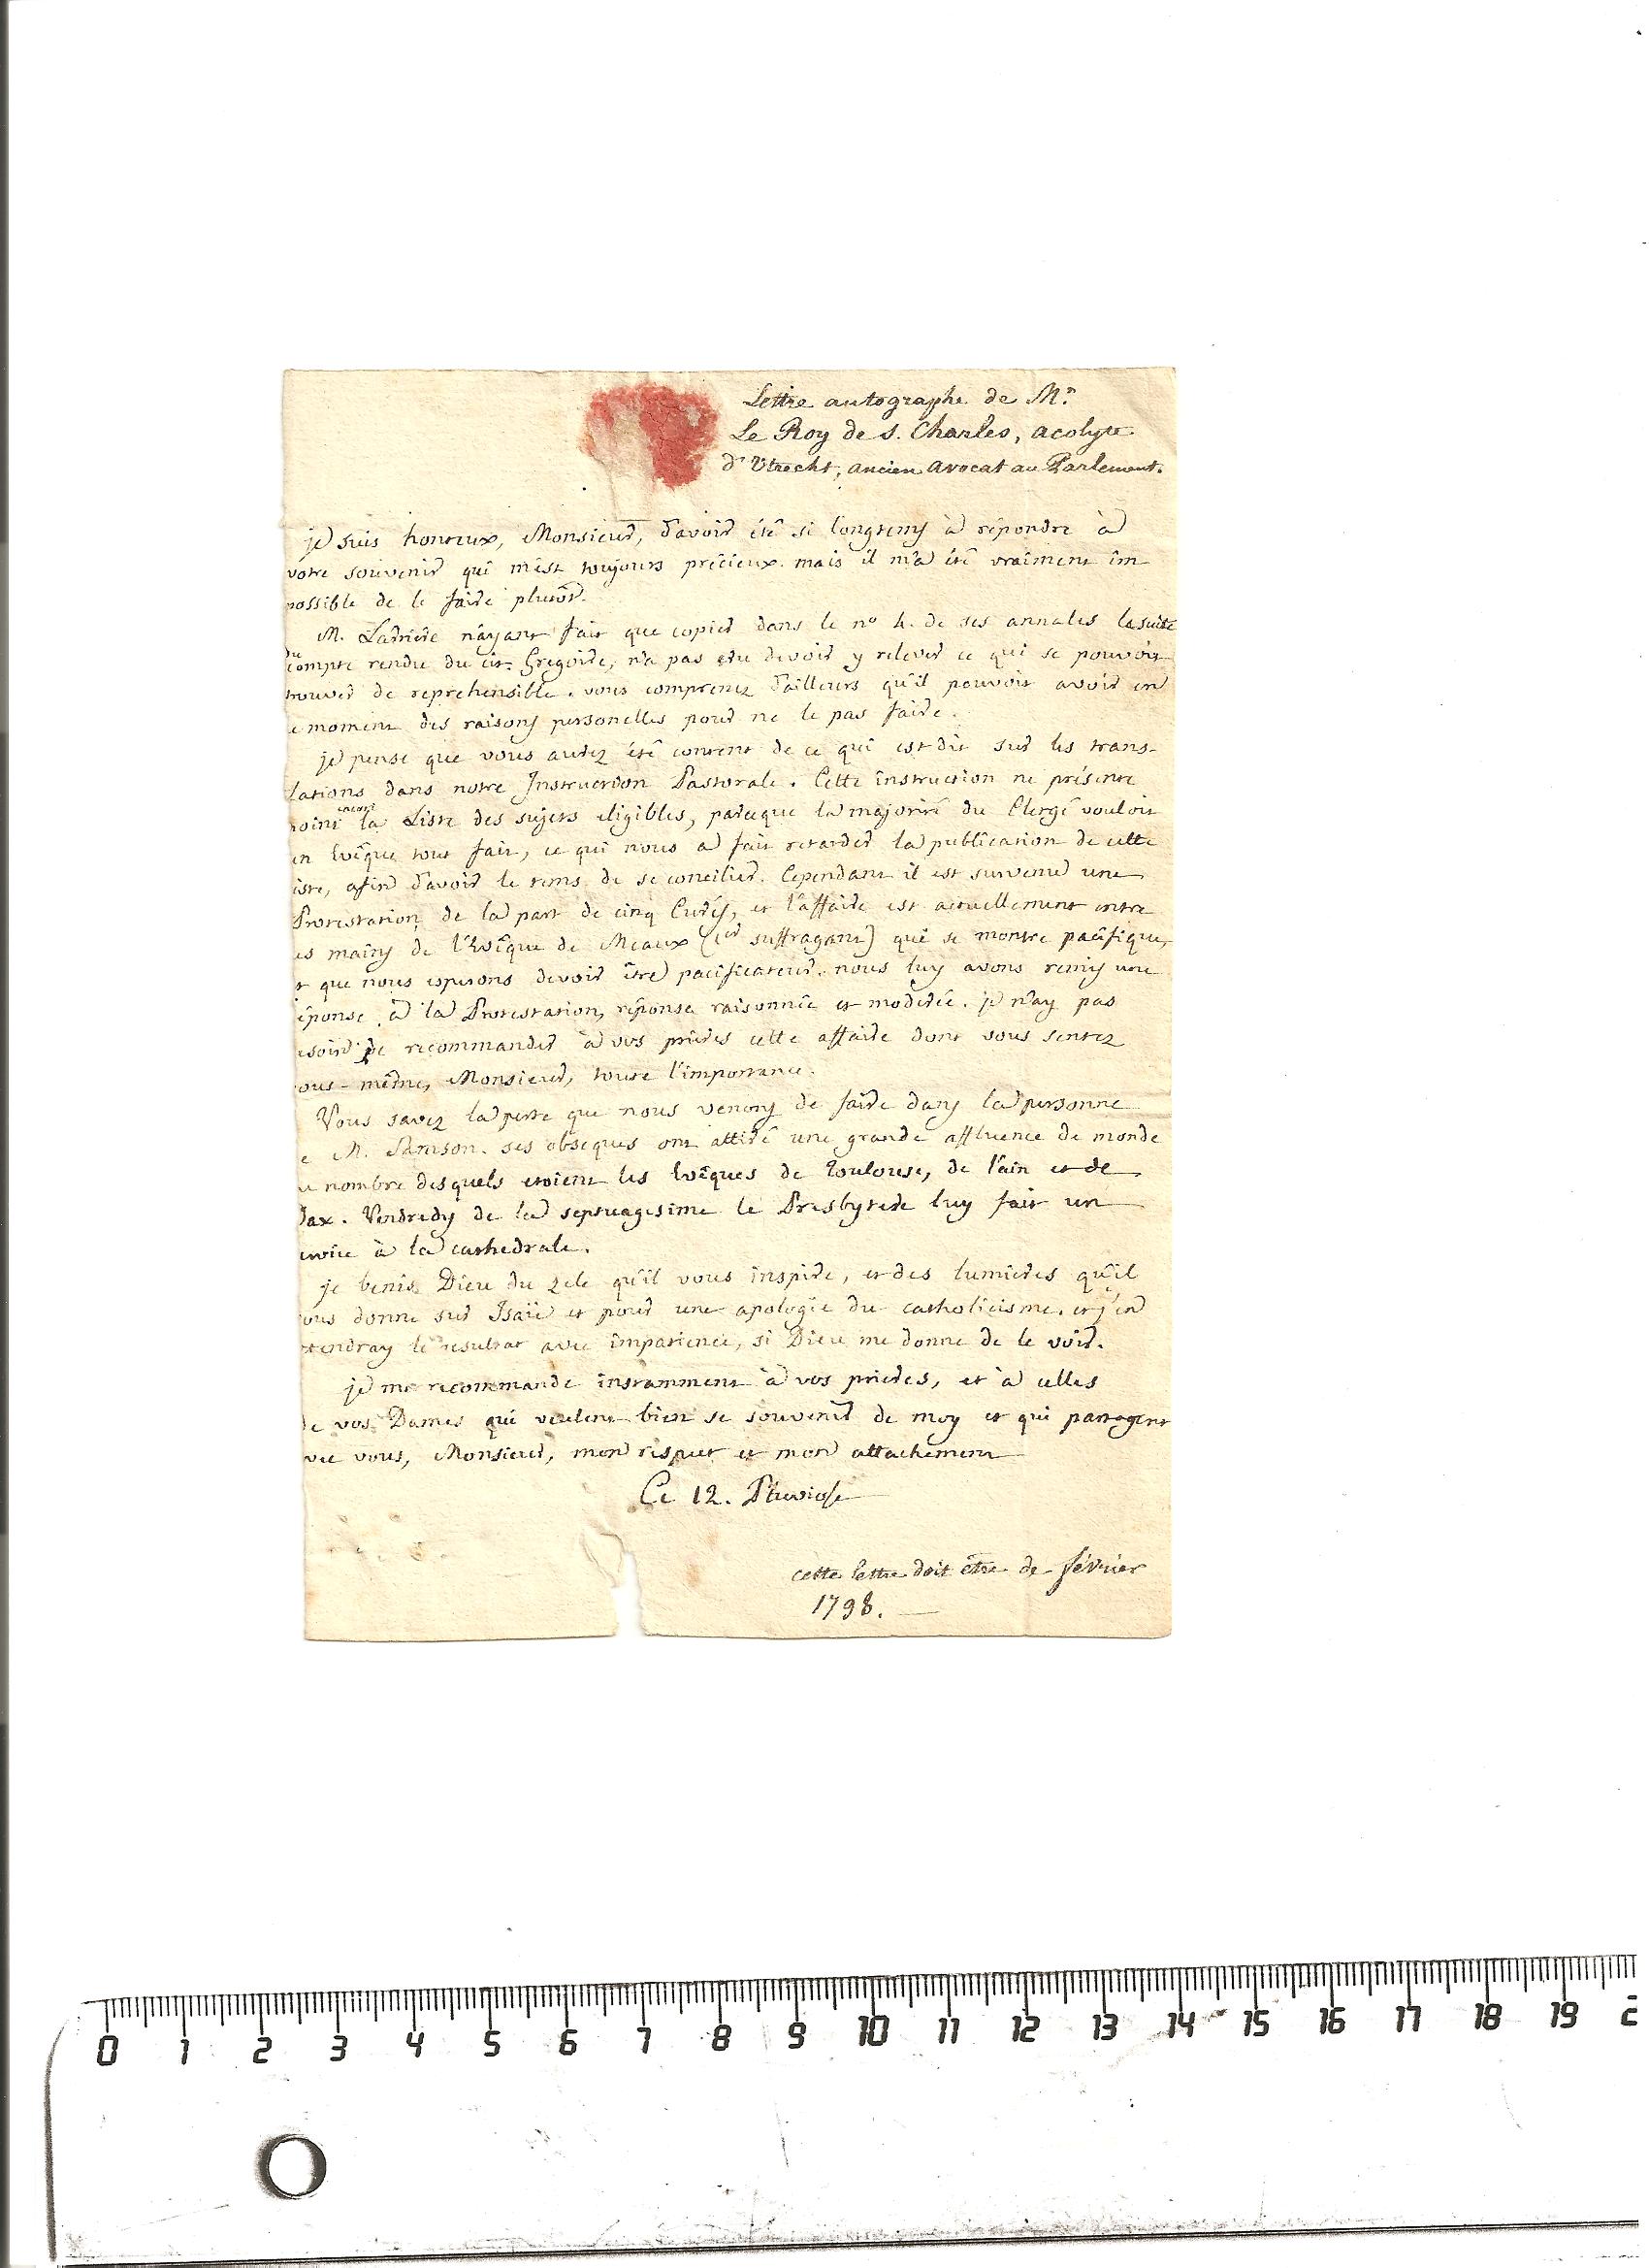 Lettre autographe de Mr.
Le Roy de S. Charles, acolyte
d'Utrecht, ancien avocat au Parlement.
je suis honteux, Monsieur, d'avoir été si longtems à répondre à
votre souvenir qui m'est toujours précieux. mais il m'a été vraiment im
possible de le faire plutôt.
M. Larriere n'ayant fait que copier dans le no 4. de ses annales la suite
du compte rendu du cit. Gregoire, n'a pas cru devoir y relever ce qui se pouvoit
trouver de reprehensible. vous comprenez d'ailleurs qu'il pouvoit avoir en
ce moment des raisons personelles pour ne le pas faire.
je pense que vous aurez été content de ce qui est dit sur les trans-
lations dans notre Instruction Pastorale. Cette instruction ne présente
point encore la Liste des sujets eligibles, parceque la majorité du Clergé vouloit
un Evêque tout fait, ce qui nous a fait retarder la publication de cette
iste, afin d'avoir le tems de se concilier. Cependant il est survenu une
Protestation de la part de cinq Curés, et l'affaire est actuellement entre
es mains de l'Evêque de Meaux (1er suffragant) qui se montre pacifique,
t que nous esperons devoir être pacificateur. nous luy avons remis une
éponse à la Protestation, réponse raisonnée et moderée. je n'ay pas
esoin de recommander à vos prieres cette affaire dont vous sentez
ous-même, Monsieur, toute l'importance.
Vous savez la perte que nous venons de faire dans la personne
e M. Samson. ses obseques ont attiré une grande affluence de monde
u nombre desquels etoient les Evêques de Toulouse, de l'ain et de
Dax. Vendredy de la septuagesime le Presbytere luy fait un
ervice à la cathedrale.
je benis Dieu du zele qu'il vous inspire, et des lumieres qu'il
ous donne sur Isaïe et pour une apologie du catholicisme. et j'en
ttendray le resultat avec impatience, si Dieu me donne de le voir.
je me recommande instamment à vos prieres, et à celles
de vos Dames qui veulent bien se souvenir de moy et qui partagent
vec vous, Monsieur, mon respect et mon attachement
Ce 12. Pluviose
cette lettre doit être de février
1798.
0 1 2 3 4 5 6 7 8 9 10 11 12 13 14 15 16 17 18 19 2